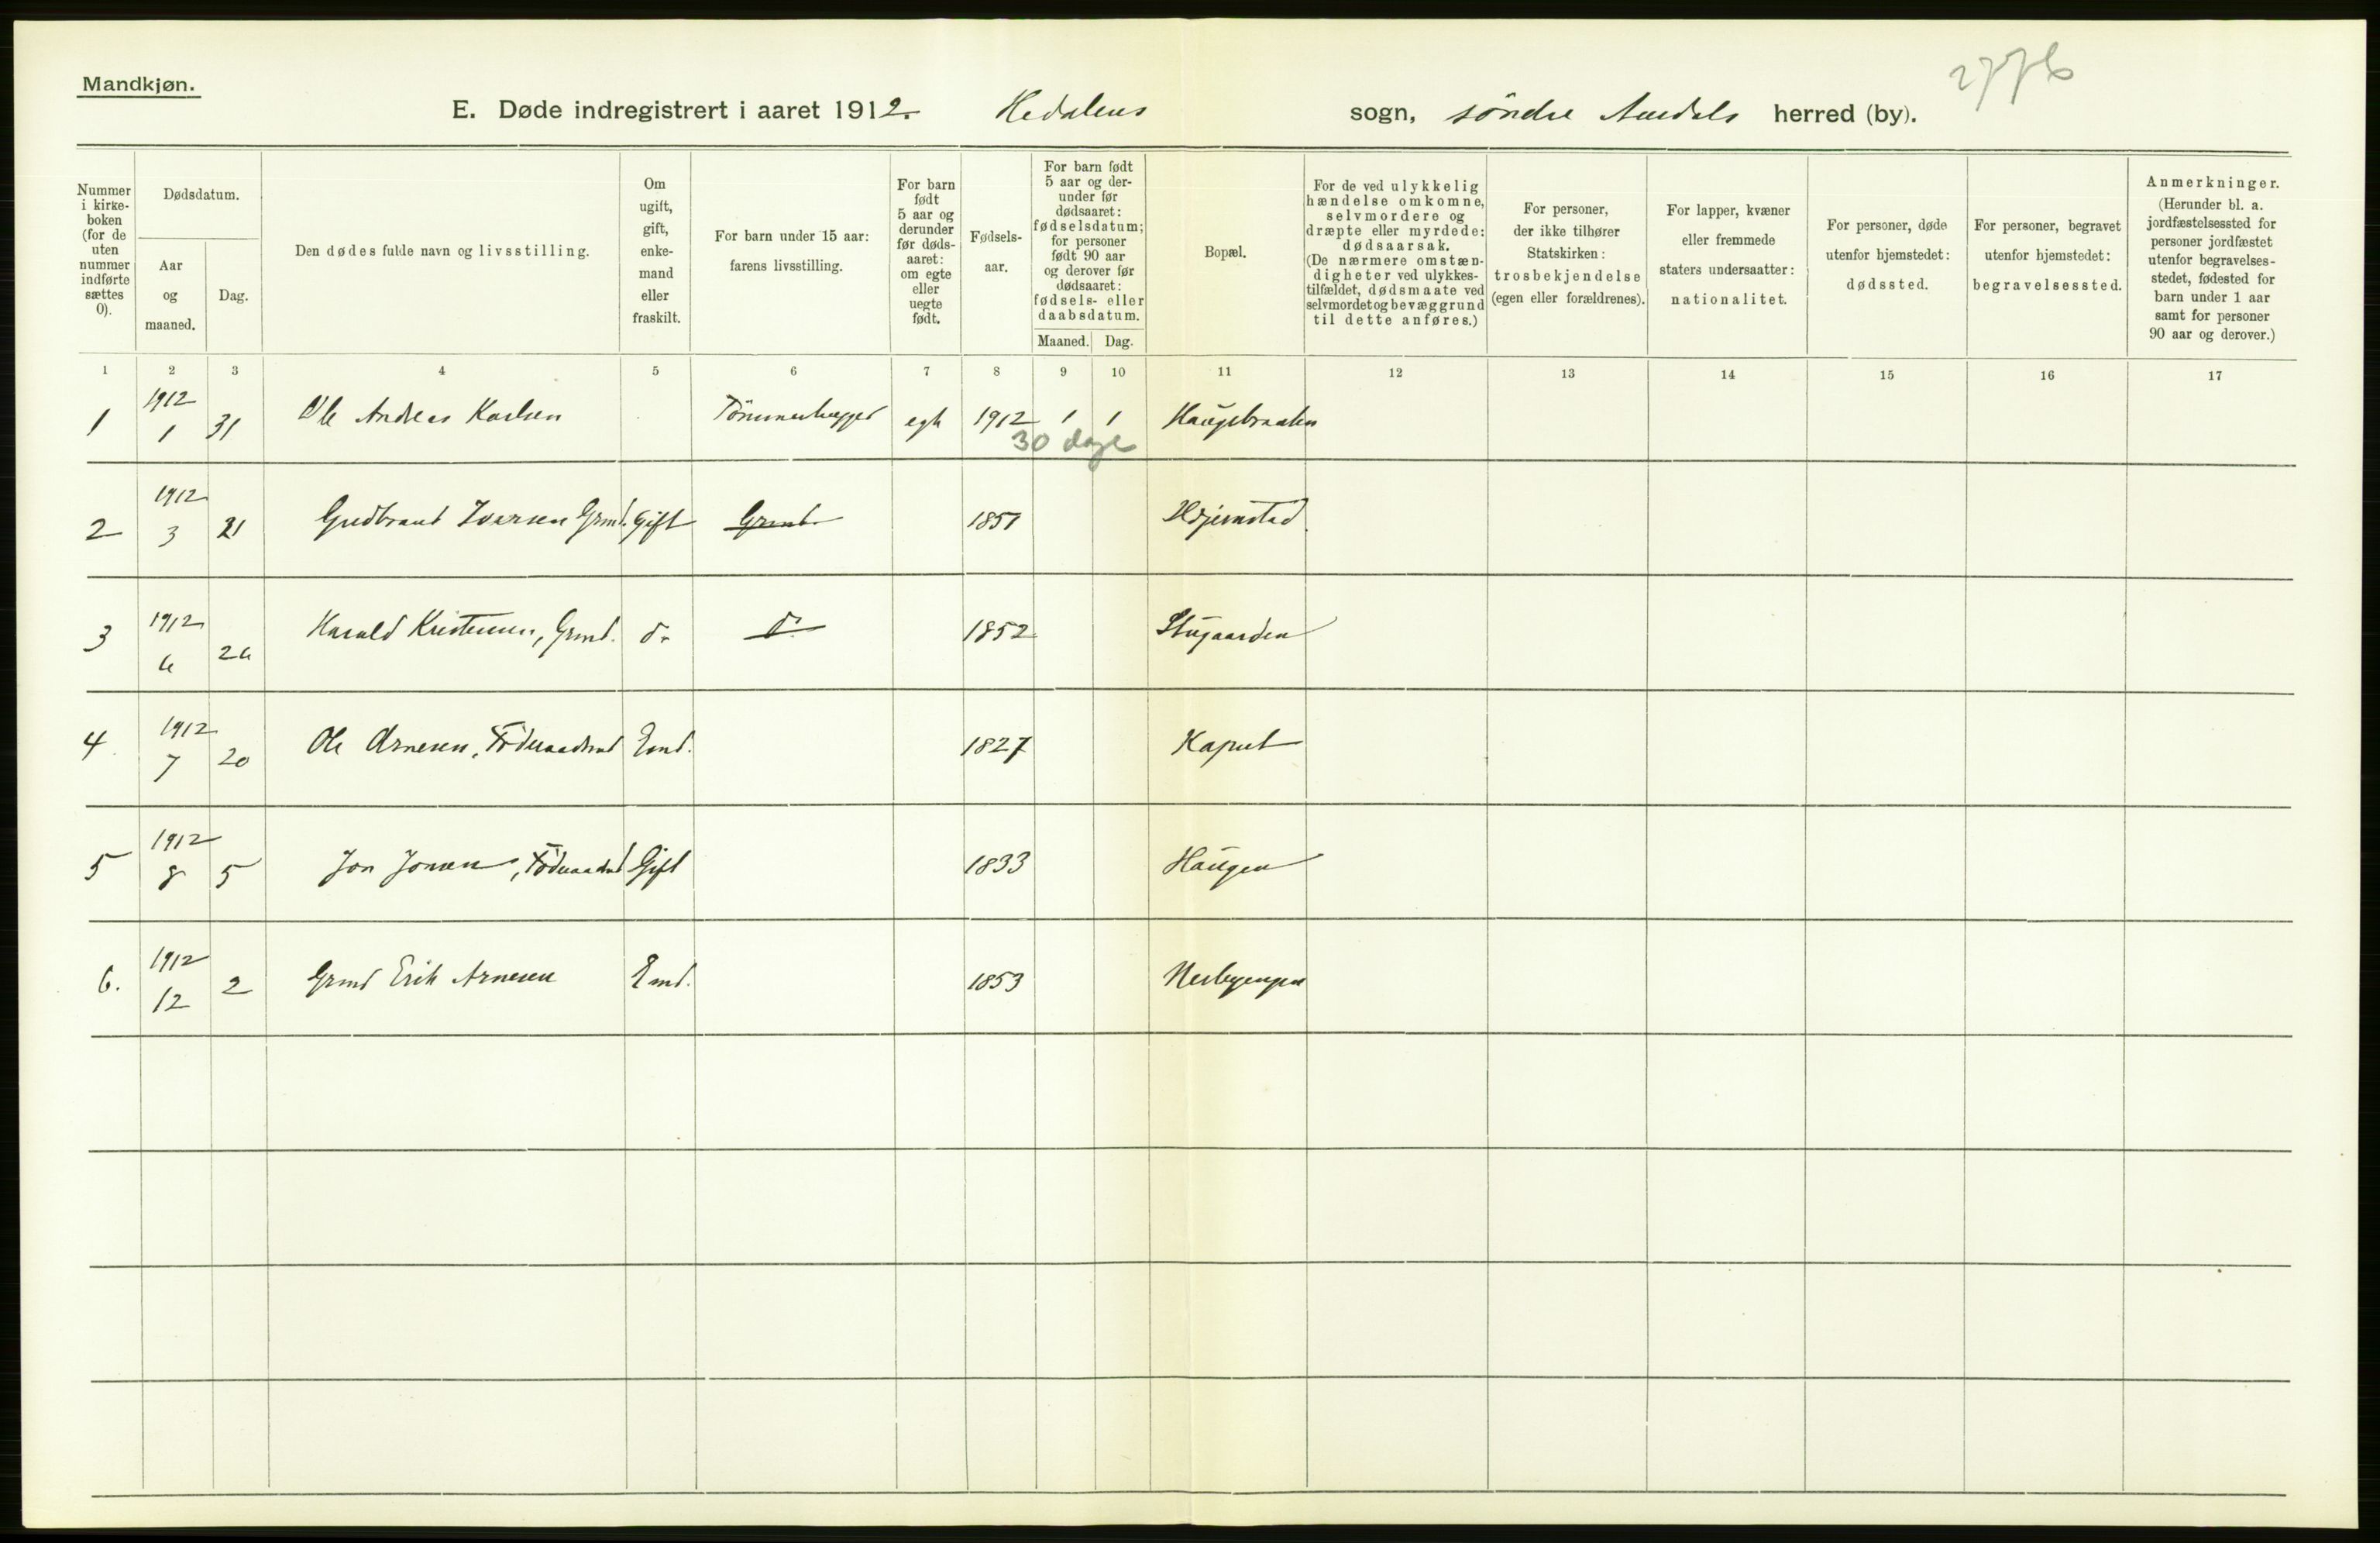 Mandkjøn.
2776
E. Døde indregistrert i aaret 1912. Hedalens sogn, söndre Aurdals herred (by).
Nummer i kirke-boken (for de uten nummer indførte sættes 0).
Dødsdatum.
Aar og maaned.
Dag.
Den dødes fulde navn og livsstilling.
Om ugift, gift, enke-mand eller fraskilt.
For barn under 15 aar: farens livsstilling.
For barn født 5 aar og derunder før døds-aaret: om egte eller uegte født.
Fødsels-aar.
For barn født 5 aar og der-under før dødsaaret: fødselsdatum; for personer født 90 aar og derover før dødsaaret: fødsels- eller daabsdatum.
Maaned. Dag.
Bopæl.
For de ved ulykkelig hændelse omkomne, selvmordere og dræpte eller myrdede: dødsaarsak. (De nærmere omstæn-digheter ved ulykkes-tilfældet, dødsmaate ved selvmordet og bevæggrund til dette anføres.)
For personer, der ikke tilhører Statskirken: trosbekjendelse (egen eller forældrenes).
For lapper, kvæner eller fremmede staters undersaatter: nationalitet.
For personer, døde utenfor hjemstedet: dødssted.
For personer, begravet utenfor hjemstedet: begravelsessted.
Anmerkninger. (Herunder bl. a. jordfæstelsessted for personer jordfæstet utenfor begravelses-stedet, fødested for barn under 1 aar samt for personer 90 aar og derover.)
1 2 3 4 5 6 7 8 9 10 11 12 13 14 15 16 17
1 1912 1 31 Ole Andreas Karlsen Tömmerhugger egte 1912 1 1 Haugsbraaten
30 dage
2 1912 3 21 Gudbrand Ivarsen Grmd. Gift Grmd. 1851 Hjemstad
3 1912 6 26 Harald Kristensen, Grmd. do do 1852 Stugaarden
4 1912 7 20 Ole Arnesen, Föderaadsmd Emd. 1827 Kaput
5 1912 8 5 Jon Jonsen, Föderaadsmd Gift 1833 Haugen
6. 1912 12 2 Grmd Erik Arnesen Emd. 1853